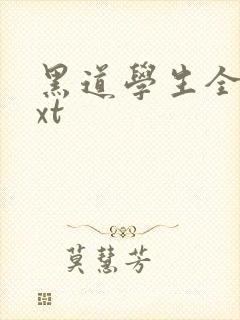 黑道學生全
xt
莫慧芳